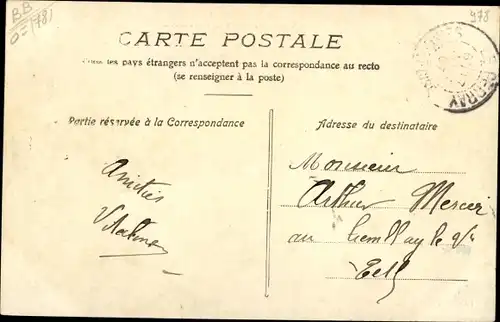 BB
(78)
978
CARTE POSTALE
Tous les pays étrangers n'acceptent pas la correspondance au recto
(se renseigner à la poste)
Partie réservée à la Correspondance
Adresse du destinataire
Amitiés
Monsieur
Arthur Mercier
au Tremblay le